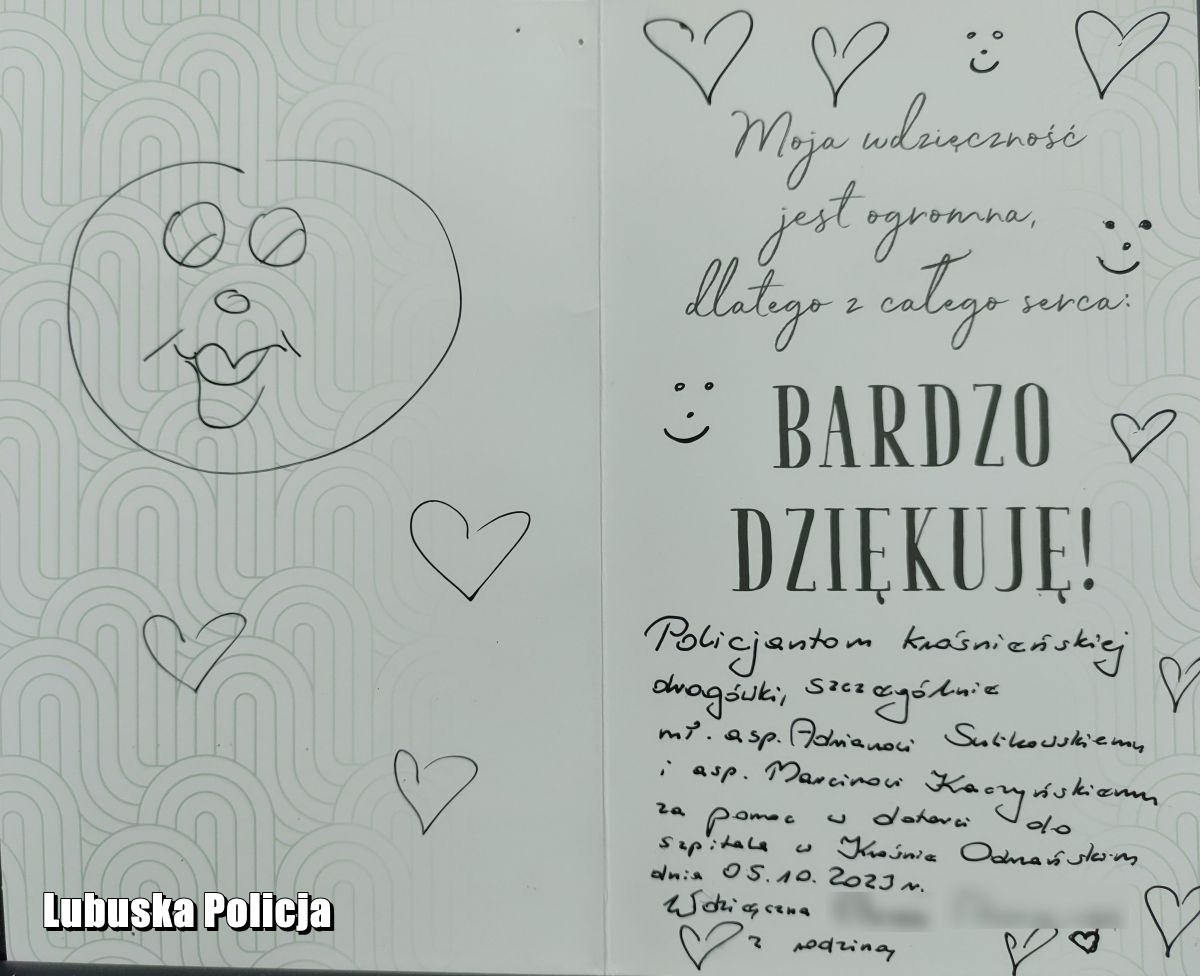 Moja wdzięczność
jest ogromna,
dlatego z całego serca:
BARDZO
DZIĘKUJĘ!
Policjantom krośnieńskiej
drogówki, szczególnie
mł. asp. Adrianowi Sulikowskiemu
i asp. Marcinowi Kaczyńskiemu
za pomoc w dotarci do
szpitala w Krośnie Odrzańskim
dnia 05.10.2023 r.
Wdzięczna
z rodziną
Lubuska Policja